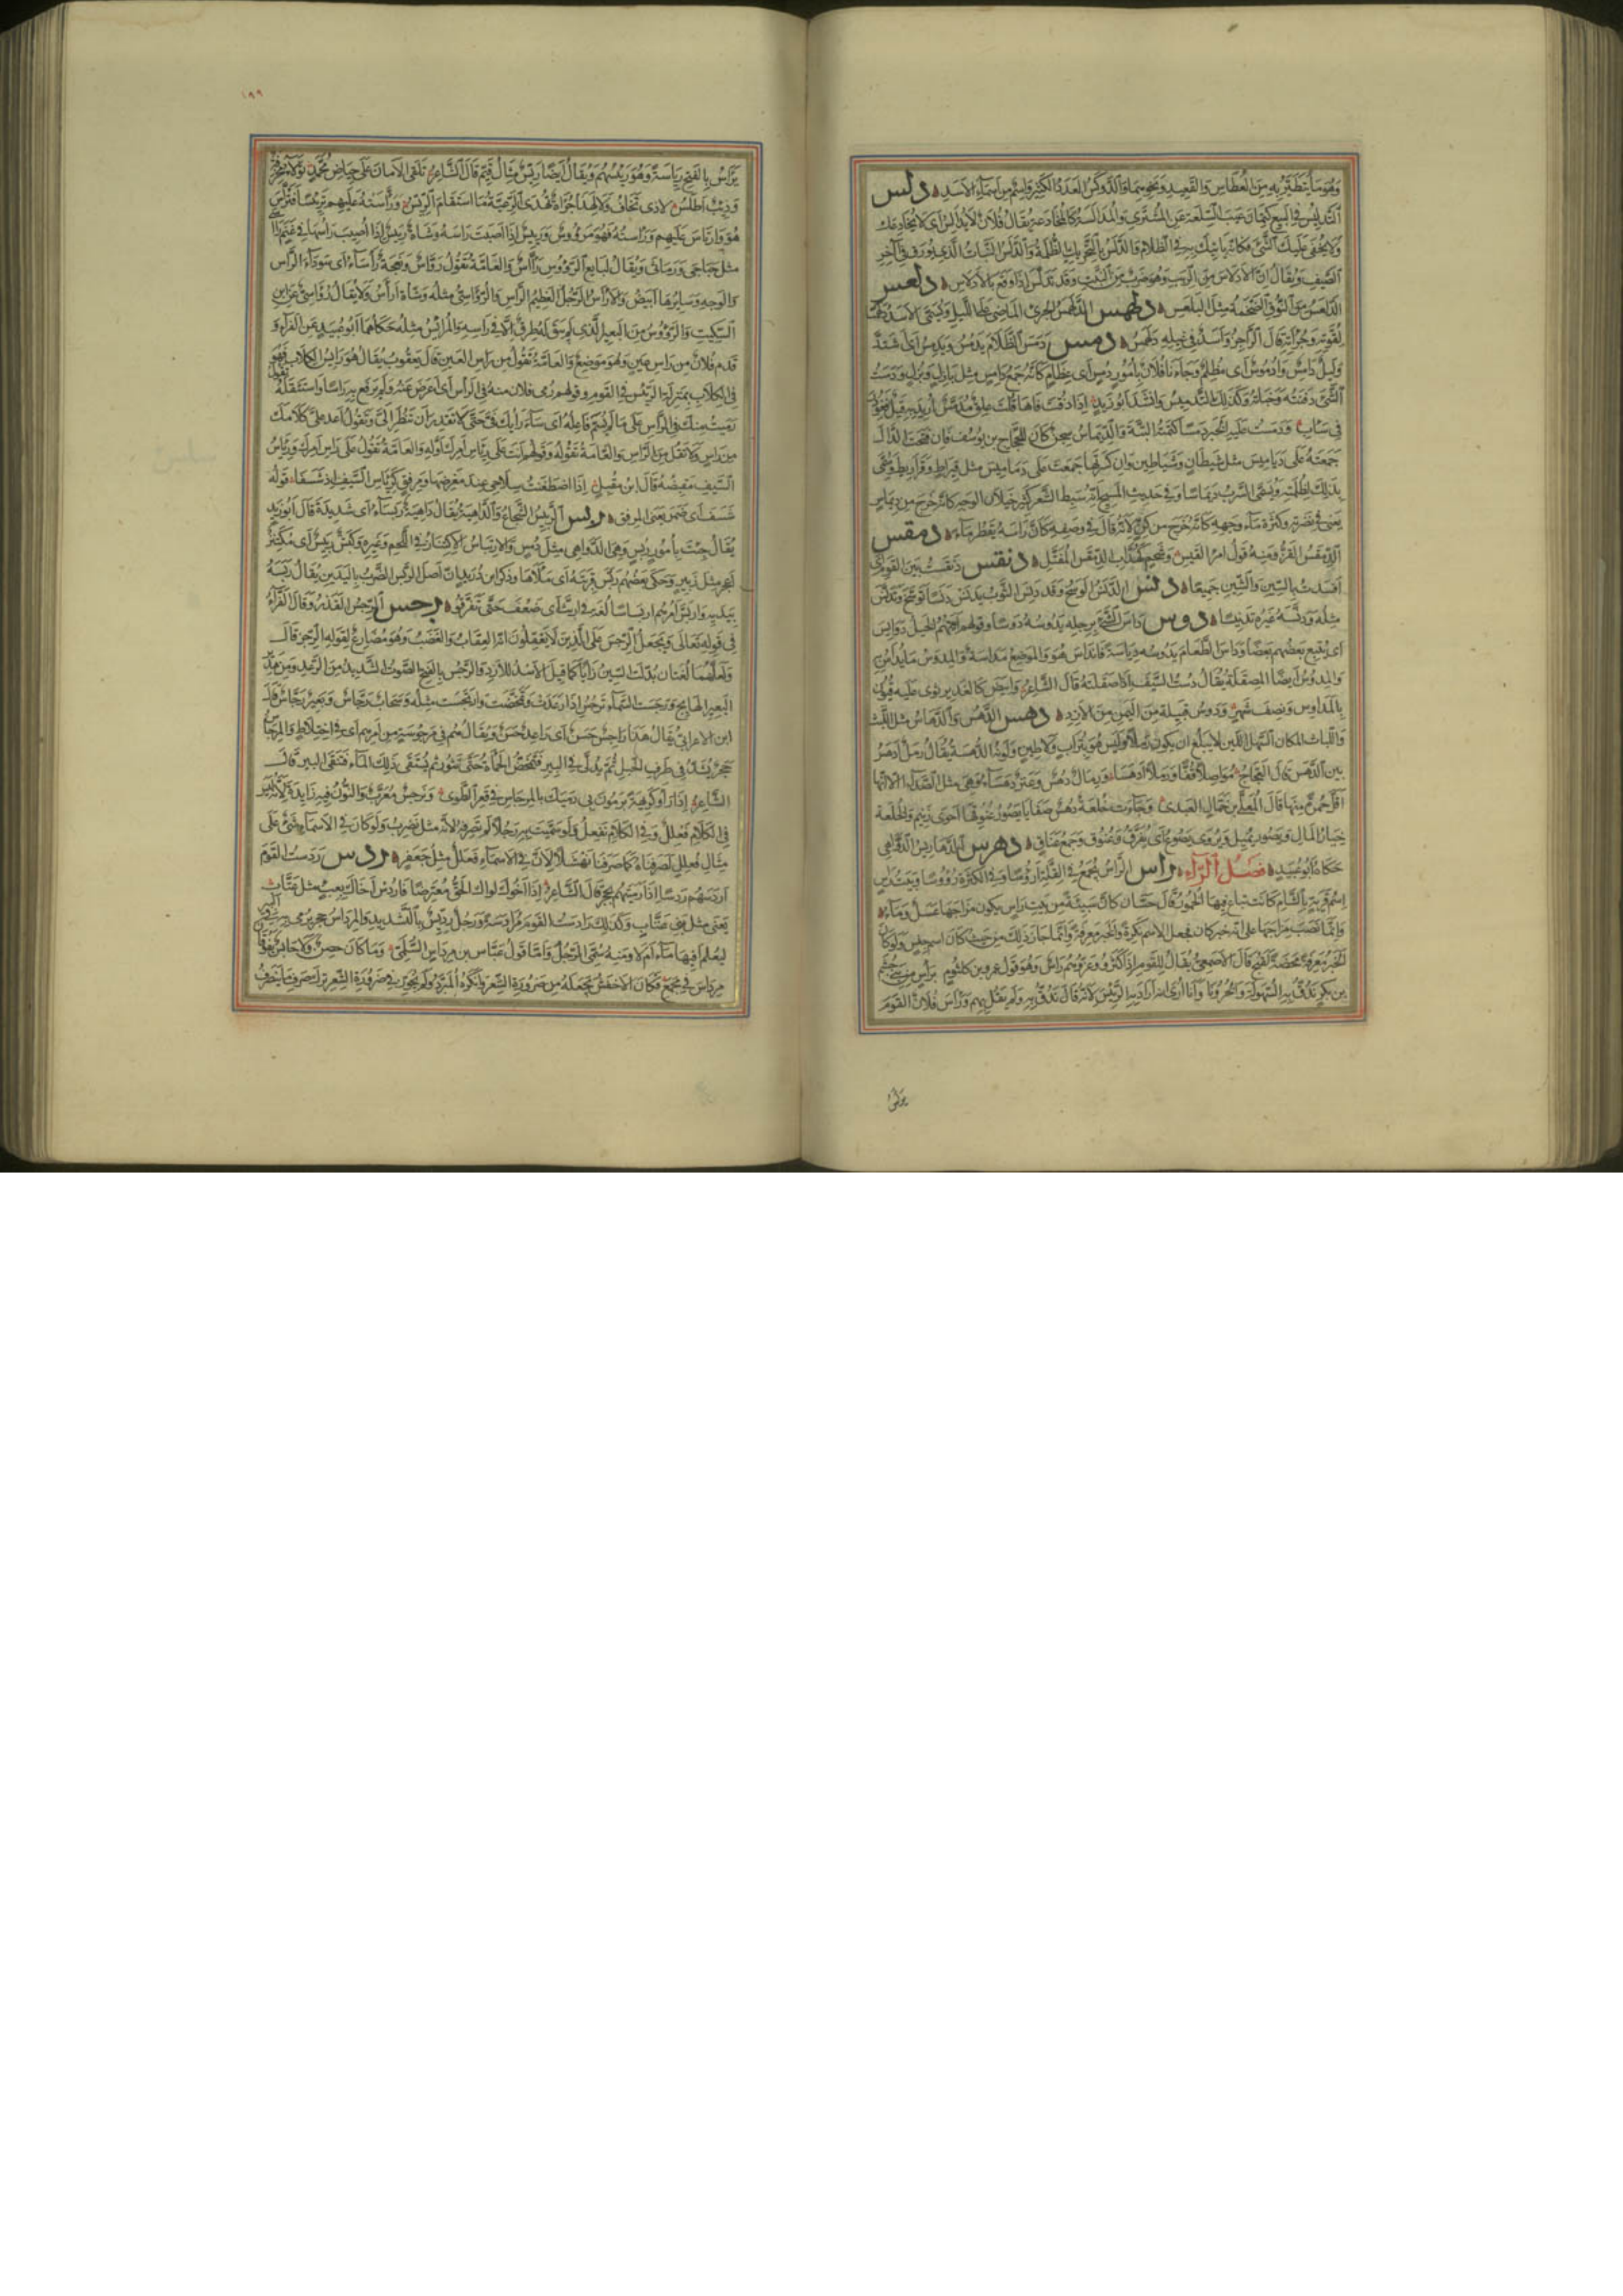 وهو ما يتطير به من العطاس والقعيد ونحوهما والدوكس العدد الكثير واسم من اسماء الاسد دلس
التدليس في البيع كتمان عيب السلعة عن المشتري والمدالسة كالمخادعة يقال فلان لا يدالسك اي لا يخادعك
ولا يخفي عليك الشيء فكانه ياتيك به في الظلام والدلس بالتحريك الظلمة والدلس النبات الذي يورق في آخر
الصيف ويقال ان الادلاس من الربب وهو ضرب من النبت وقد تدلس اذا وقع بالادلاس دلعس
الدلعس من النوق الضخمة مثل البلعس دلهمس الدلهمس الجريء الماضي على الليل ويسمى الاسد دلهمسا
لقوته وجراته قال الراجز واسد في غيله دلهمس دمس دمس الظلام يدمس ويدمس اي اشتد
وليل دامس وادموس اي مظلم وجاءنا فلان بامور دمس اي عظام كانه جمع دامس مثل بازل وبزل ودمست
الشيء دفنته وخباته وكذلك التدميس وانشد ابو زيد اذا ذقت فاها قلت علق مدمس اريد به قيل فغودر
في ساب ودمست عليه الخبر دمسا كتمته البتة والديماس سجن كان للحجاج بن يوسف فان فتحت الدال
جمعته على دياميس مثل شيطان وشياطين وان كسرتها جمعت على دماميس مثل قيراط وقراريط وسمي
بذلك لظلمته ويسمى السرب ديماسا وفي حديث المسيح انه سبط الشعر كثير خيلان الوجه كانه خرج من ديماس
يعني في نضرته وكثرة ماء وجهه كانه خرج من كن لانه قال في وصفه كان راسه يقطر ماء دمقس
الدمقس القز ومنه قول امرئ القيس وشحم كهداب الدمقس المفتل دنقس دنقست بين القوم
افسدت بالسين والشين جميعا دنس الدنس الوسخ وقد دنس الثوب يدنس دنسا توسخ وتدنس
مثله ودنسه غيره تدنيسا دوس داس الشيء برجله يدوسه دوسا وقولهم اتتهم الخيل دوايس
اي يتبع بعضهم بعضا وداس الطعام يدوسه دياسة فانداس هو والموضع مداسة والمدوس ما يداس به
والمدوس ايضا المصقلة يقال دست السيف اذا صقلته قال الشاعر وابيض كالغدير ثوى عليه قيون
بالمداوس ونصف شهر ودوس قبيلة من اليمن من الازد دهس الدهس والدهاس مثل اللبث
واللباث المكان السهل اللين لا يبلغ ان يكون رملا وليس هو بتراب ولا طين ولونه الدهسة يقال رمل ادهس
بين الدهس قال العجاج مواصلا قفا ورملا ادهسا ورمال دهس وعنز دهساء وهي مثل الصداء الا انها
اقل حمرة منها قال المعلى بن جمال العبدي وجاءت خلعة دهس صفايا يصور عنوقها احوى زنيم والخلعة
خيار المال ويصور يميل ويروى يصوع اي يفرق وعنوق جمع عناق دهرس الدهاريس الدواهي
حكاه ابو عبيد فصل الراء راس الراس يجمع في القلة ارؤسا وفي الكثرة رؤوسا وبيت راس
اسم قرية بالشام كانت تباع فيها الخمور قال حسان كان سبيئة من بيت راس يكون مزاجها عسل وماء
وانما نصب مزاجها على انه خبر كان فجعل الاسم نكرة والخبر معرفة وانما جاز ذلك من حيث كان اسم جنس ولو كان
الخبر معرفة محضة لقبح قال الاصمعي يقال للقوم اذا كثروا وعزوا هم راس وهو قول عمرو بن كلثوم براس من بني جشم
بن بكر ندق به السهولة والحزونا وانا ارى انه اراد به الرئيس لانه قال ندق به ولم يقل بهم وراس فلان القوم
يراس
١٩٩
يراس بالفتح رياسة وهو رئيسهم ويقال ايضا ريس مثال قيم قال الشاعر تلقى الامان على حياض محمد ثولاء مخرفة
وذئب اطلس لا ذي تخاف ولا لهذا جراة تهدى الرعية ما استقام الريس ورأسته عليهم ترئيسا فترأس
هو وارتاس عليهم ورأسته فهو مرؤوس ورئيس اذا اصبت راسه وشاة رئيس اذا اصيب راسها في غنم رآسى
مثل حباجى ورماثى ويقال لبايع الرؤوس رآس والعامة تقول رواس ونعجة رأساء اي سوداء الراس
والوجه وسايرها ابيض والارأس الرجل العظيم الراس والرؤاسي مثله وشاة ارأس ولا يقال رؤاسي عن ابن
السكيت والرؤوس من البعير الذي لم يبق له طرق الا في راسه والمرائس مثله حكاهما ابو عبيد عن الفراء و
قدم فلان من راس عين وهو موضع والعامة تقول من راس العين قال يعقوب يقال هو رايس الكلاب فهو
في الكلاب بمنزلة الرئيس في القوم وقولهم رمي فلان منه في الراس اي اعرض عنه ولم يرفع به راسا واستثقله تقول
رميت منك في الراس على ما لم يسم فاعله اي ساء رايك في حتى لا تقدر ان تنظر الي وتقول اعد علي كلامك
من راس ولا تقل من الراس والعامة تقوله وقولهم انت على رئاس امرك اي اوله والعامة تقول على راس امرك ورئاس
السيف مقبضه قال ابن مقبل اذا اضطغنت سلاحي عند مغرضها ومرفق كرئاس السيف اذ شسفا قوله
شسف اي ضمر يعني المرفق ربس الربيس الشجاع والداهية يقال داهية ربساء اي شديدة قال ابو زيد
يقال جئت بامور ربس وهي الدواهي مثل دبس والارتباس الاكتناز في اللحم وغيره وكبش ربيس اي مكتنز
اعجر مثل زبير وحكى بعضهم ربس قربته اي ملاها وذكر ابن دريد ان اصل الربس الضرب باليدين يقال ربسه
بيديه واربس امرهم اربساسا لغة في اربث اي ضعف حتى تفرقوا رجس الرجس القذر وقال الفراء
في قوله تعالى ويجعل الرجس على الذين لا يعقلون انه العقاب والغضب وهو مضارع لقوله الرجز قال
ولعلهما لغتان بدلت السين زايا كما قيل الاسد للازد والرجس بالفتح الصوت الشديد من الرعد ومن هدير
البعير الهايج ورجست السماء ترجس اذا رعدت وتمخضت وارتجست مثله وسحاب رجاس وبعير رجاس قال
ابن الاعرابي يقال هذا راجس حسن اي راعد حسن ويقال هم في مرجوسة من امرهم اي في اختلاط والمرجاس
حجر يشد في طرف الحبل ثم يدلى في البير فتمخض الحماة حتى تثور ثم يستقى ذلك الماء فتنقى البير قال
الشاعر اذا راوا كريهة يرمون بي رميك بالمرجاس في قعر الطوي ونرجس معرب والنون فيه زايدة لانه ليس
في الكلام فعلل وفي الكلام نفعل فلو سميت به رجلا لم تصرفه لانه مثل نضرب ولو كان في الاسماء شيء على
مثال فعلل لصرفناه كما صرفنا نهشلا لان في الاسماء فعلل مثل جعفر ردس ردست القوم
اردسهم ردسا اذا رميتهم بحجر قال الشاعر اذا اخوك لواك الحق معترضا فاردس اخاك بعبء مثل عتاب
يعني مثل بني عتاب وكذلك رادست القوم مرادسة ورجل رديس بالتشديد والمرداس حجر يرمى به في البير
ليعلم افيها ماء ام لا ومنه سمي الرجل واما قول عباس بن مرداس السلمي وما كان حصن ولا حابس يفوقان
مرداس في مجمع فكان الاخفش يجعله من ضرورة الشعر وانكره المبرد ولم يجوز في ضرورة الشعر ترك صرف ما ينصرف